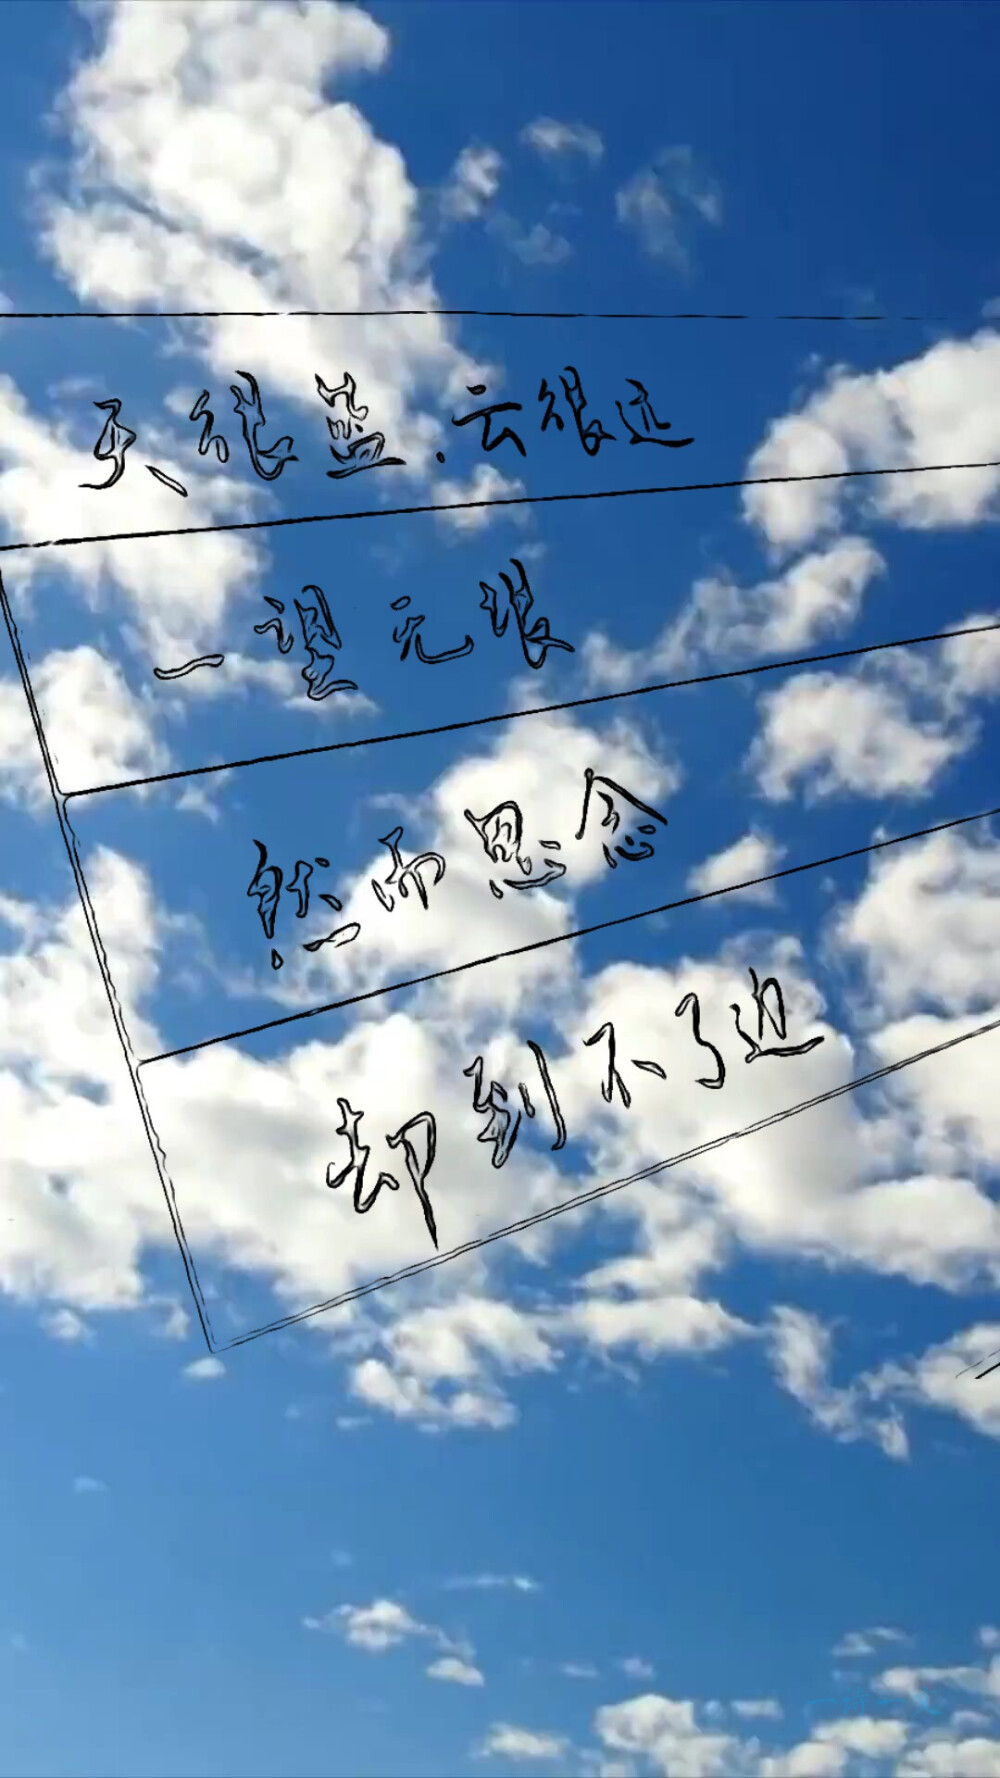 天很蓝.云很远
一望无垠
然而思念
却到不了边